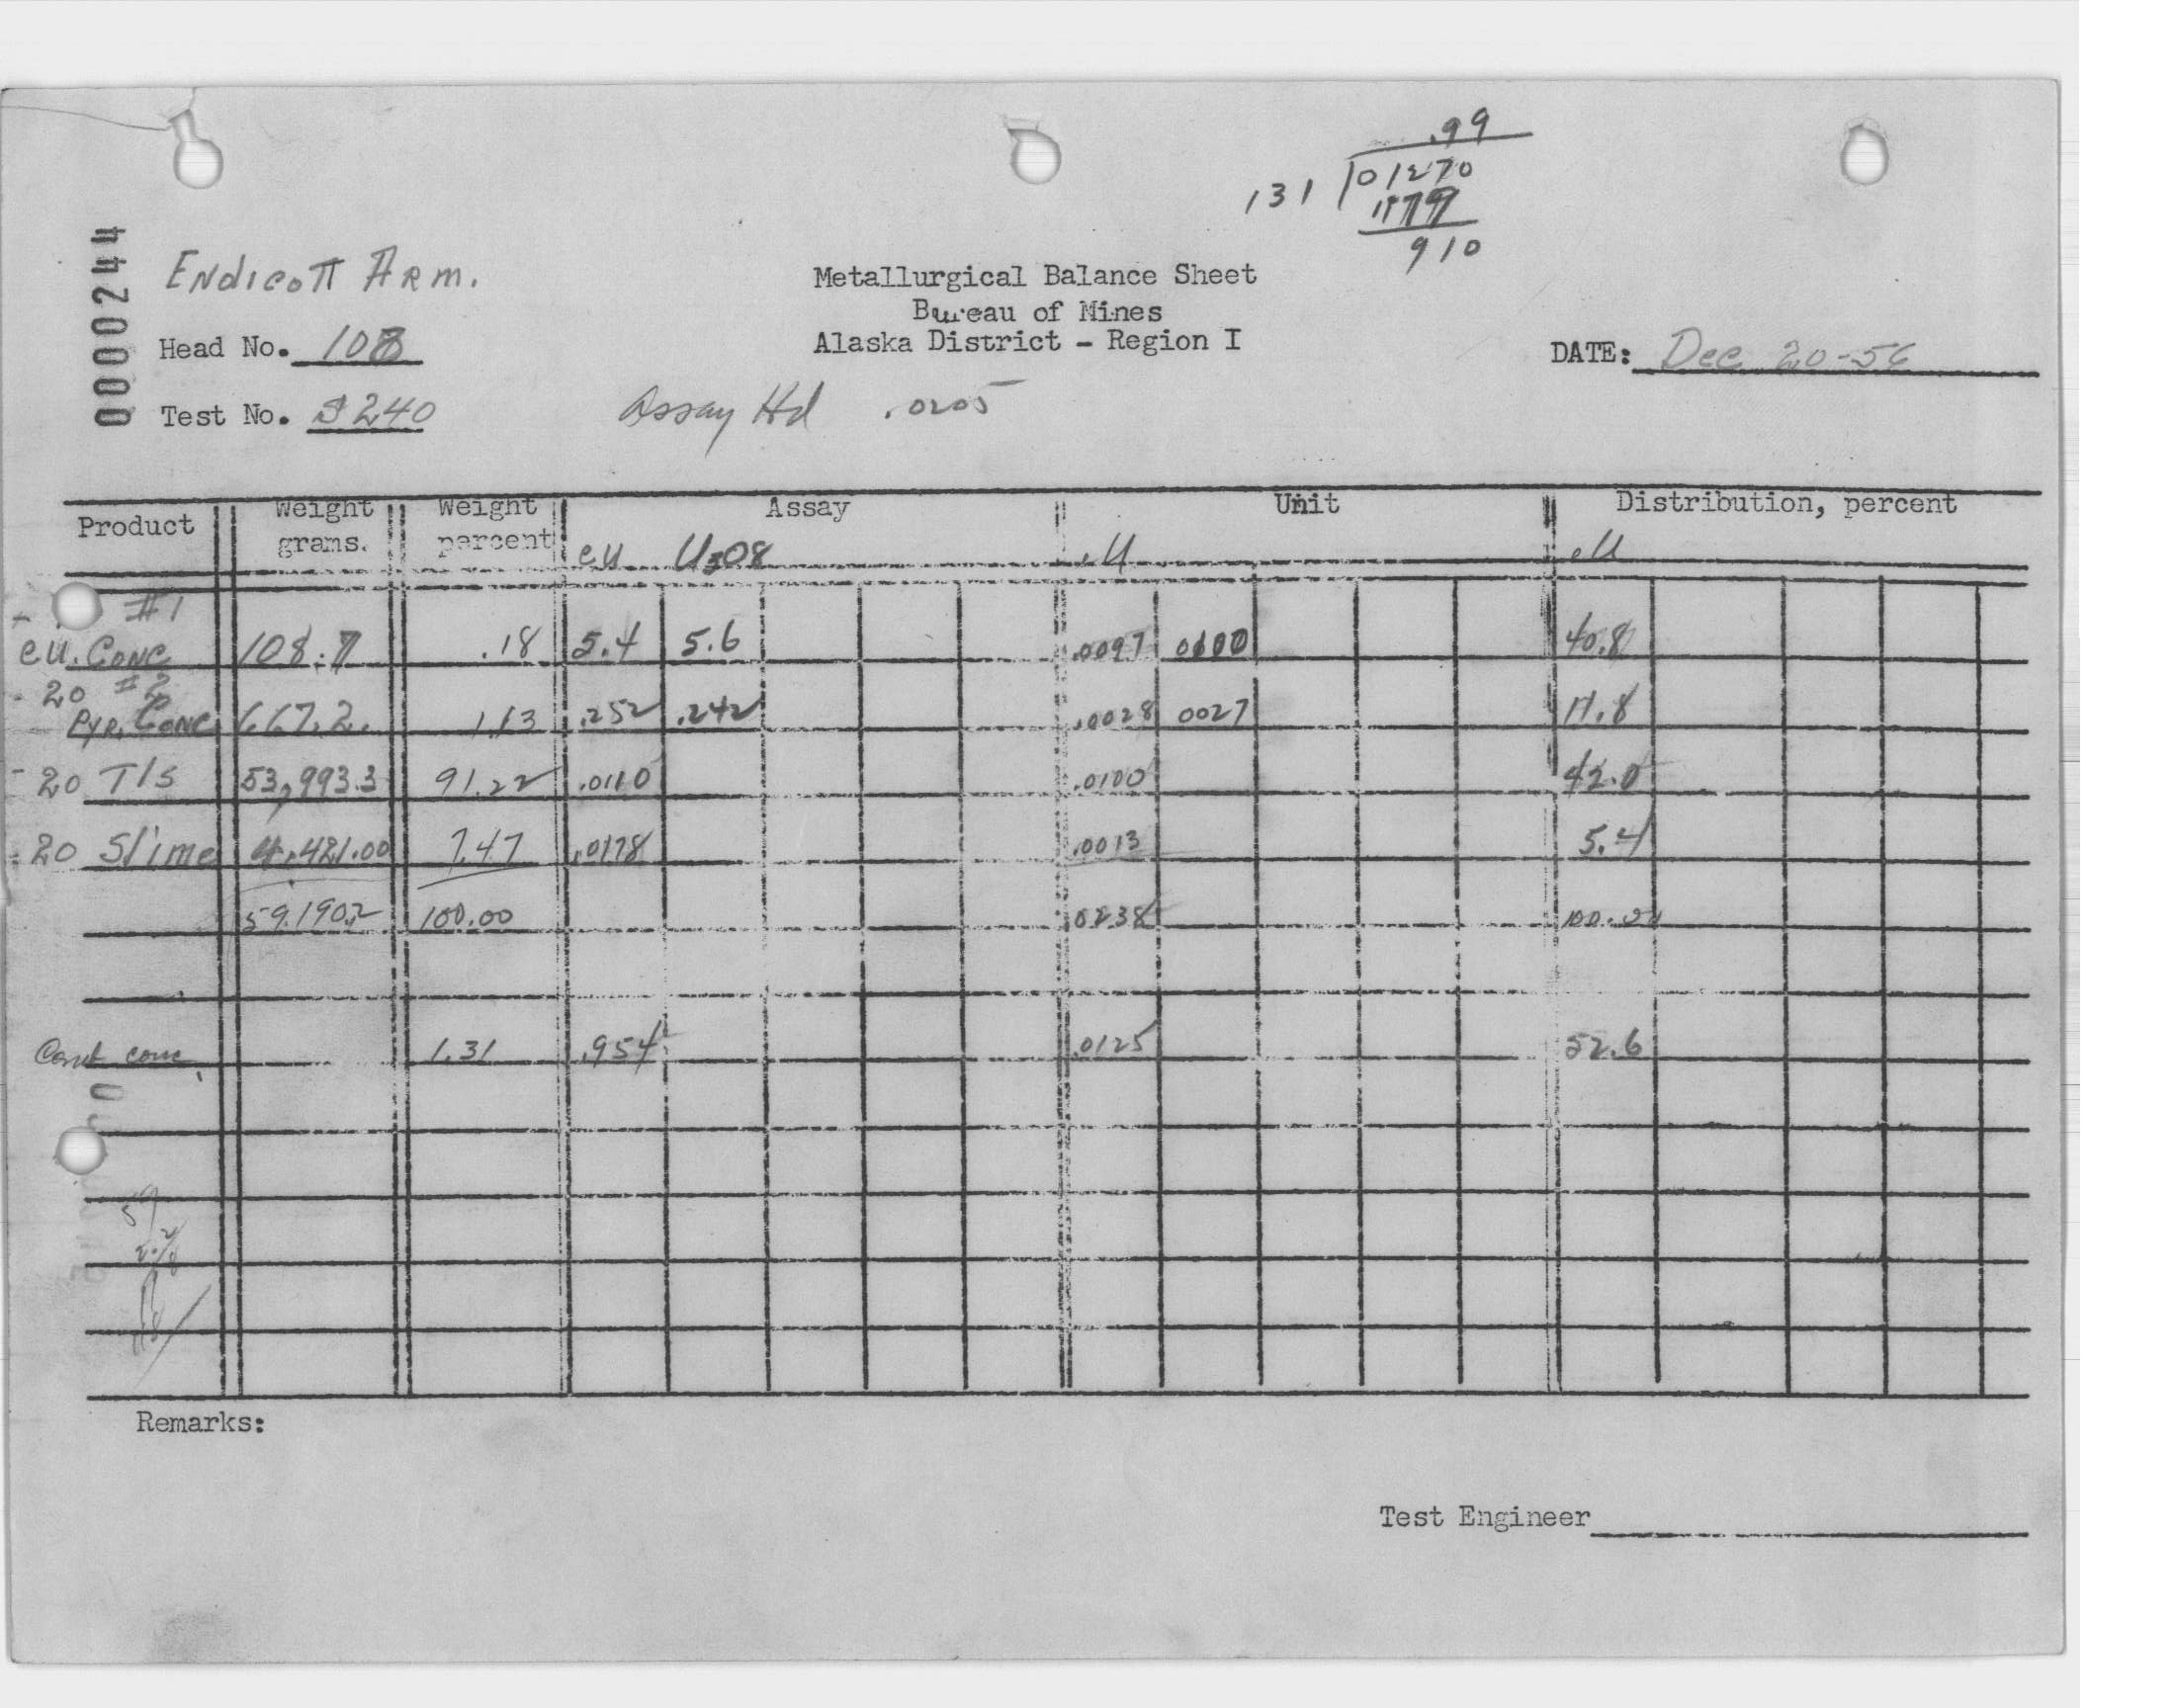 .99
131 01270
1179
910
0000244
Endicott Arm.
Metallurgical Balance Sheet
Bureau of Mines
Alaska District - Region I
Head No. 108
DATE: Dec 20-56
Test No. S240
Assay Hd .0205
Product Weight grams. Weight percent Assay Unit Distribution, percent
eU U3O8 eU eU
#1
eU. Conc 108.7 .18 5.4 5.6 .0097 0100 40.8
- 20 #2
Pyr. Conc 667.2 1.13 .252 .242 .0028 0027 11.8
- 20 T/s 53,993.3 91.22 .0110 .0100 42.0
- 20 Slime 4,421.00 7.47 .0178 .0013 5.4
59.190.2 100.00 0238 100.00
Comb conc 1.31 .954 .0125 52.6
Remarks:
Test Engineer